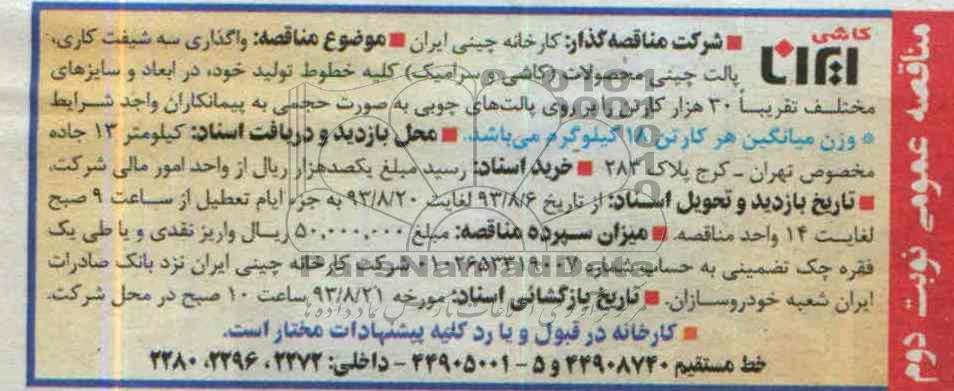 مناقصه عمومی نوبت دوم
کاشی ایرانا
■ شرکت مناقصه گذار: کارخانه چینی ایران ■ موضوع مناقصه: واگذاری سه شیفت کاری،
پالت چینی محصولات (کاشی و سرامیک) کلیه خطوط تولید خود، در ابعاد و سایزهای
مختلف تقریباً ۳۰ هزار کارتن را بر روی پالت‌های چوبی به صورت حجمی به پیمانکاران واجد شرایط
* وزن میانگین هر کارتن ۱۸ کیلوگرم می‌باشد. ■ محل بازدید و دریافت اسناد: کیلومتر ۱۳ جاده
مخصوص تهران ـ کرج پلاک ۲۸۳ ■ خرید اسناد: رسید مبلغ یکصدهزار ریال از واحد امور مالی شرکت.
■ تاریخ بازدید و تحویل اسناد: از تاریخ ۹۳/۸/۶ لغایت ۹۳/۸/۲۰ به جزء ایام تعطیل از ساعت ۹ صبح
لغایت ۱۴ واحد مناقصه. ■ میزان سپرده مناقصه: مبلغ ۵۰,۰۰۰,۰۰۰ ریال واریز نقدی و یا طی یک
فقره چک تضمینی به حساب شماره ۰۱۰۲۶۵۳۳۱۹۰۰۷ شرکت کارخانه چینی ایران نزد بانک صادرات
ایران شعبه خودروسازان. ■ تاریخ بازگشائی اسناد: مورخه ۹۳/۸/۲۱ ساعت ۱۰ صبح در محل شرکت.
■ کارخانه در قبول و یا رد کلیه پیشنهادات مختار است.
خط مستقیم ۴۴۹۰۸۷۴۰ و ۵ - ۴۴۹۰۵۰۰۱ - داخلی: ۲۲۷۲، ۲۲۹۶، ۲۲۸۰